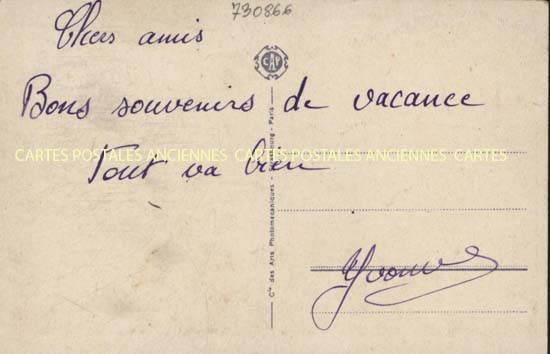 730866
Chers amis
CAP
Bons souvenirs de vacance
CARTES POSTALES ANCIENNES CARTES POSTALES ANCIENNES CARTES
Tout va bien
Yvonne
Cie des Arts Photomécaniques - Strasbourg - Paris